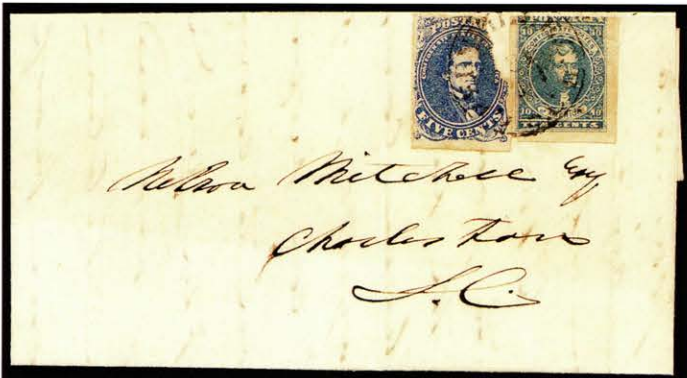 POSTAGE
FIVE CENTS
10 10
TEN CENTS
Nelson Mitchell Esq
Charleston
S.C.